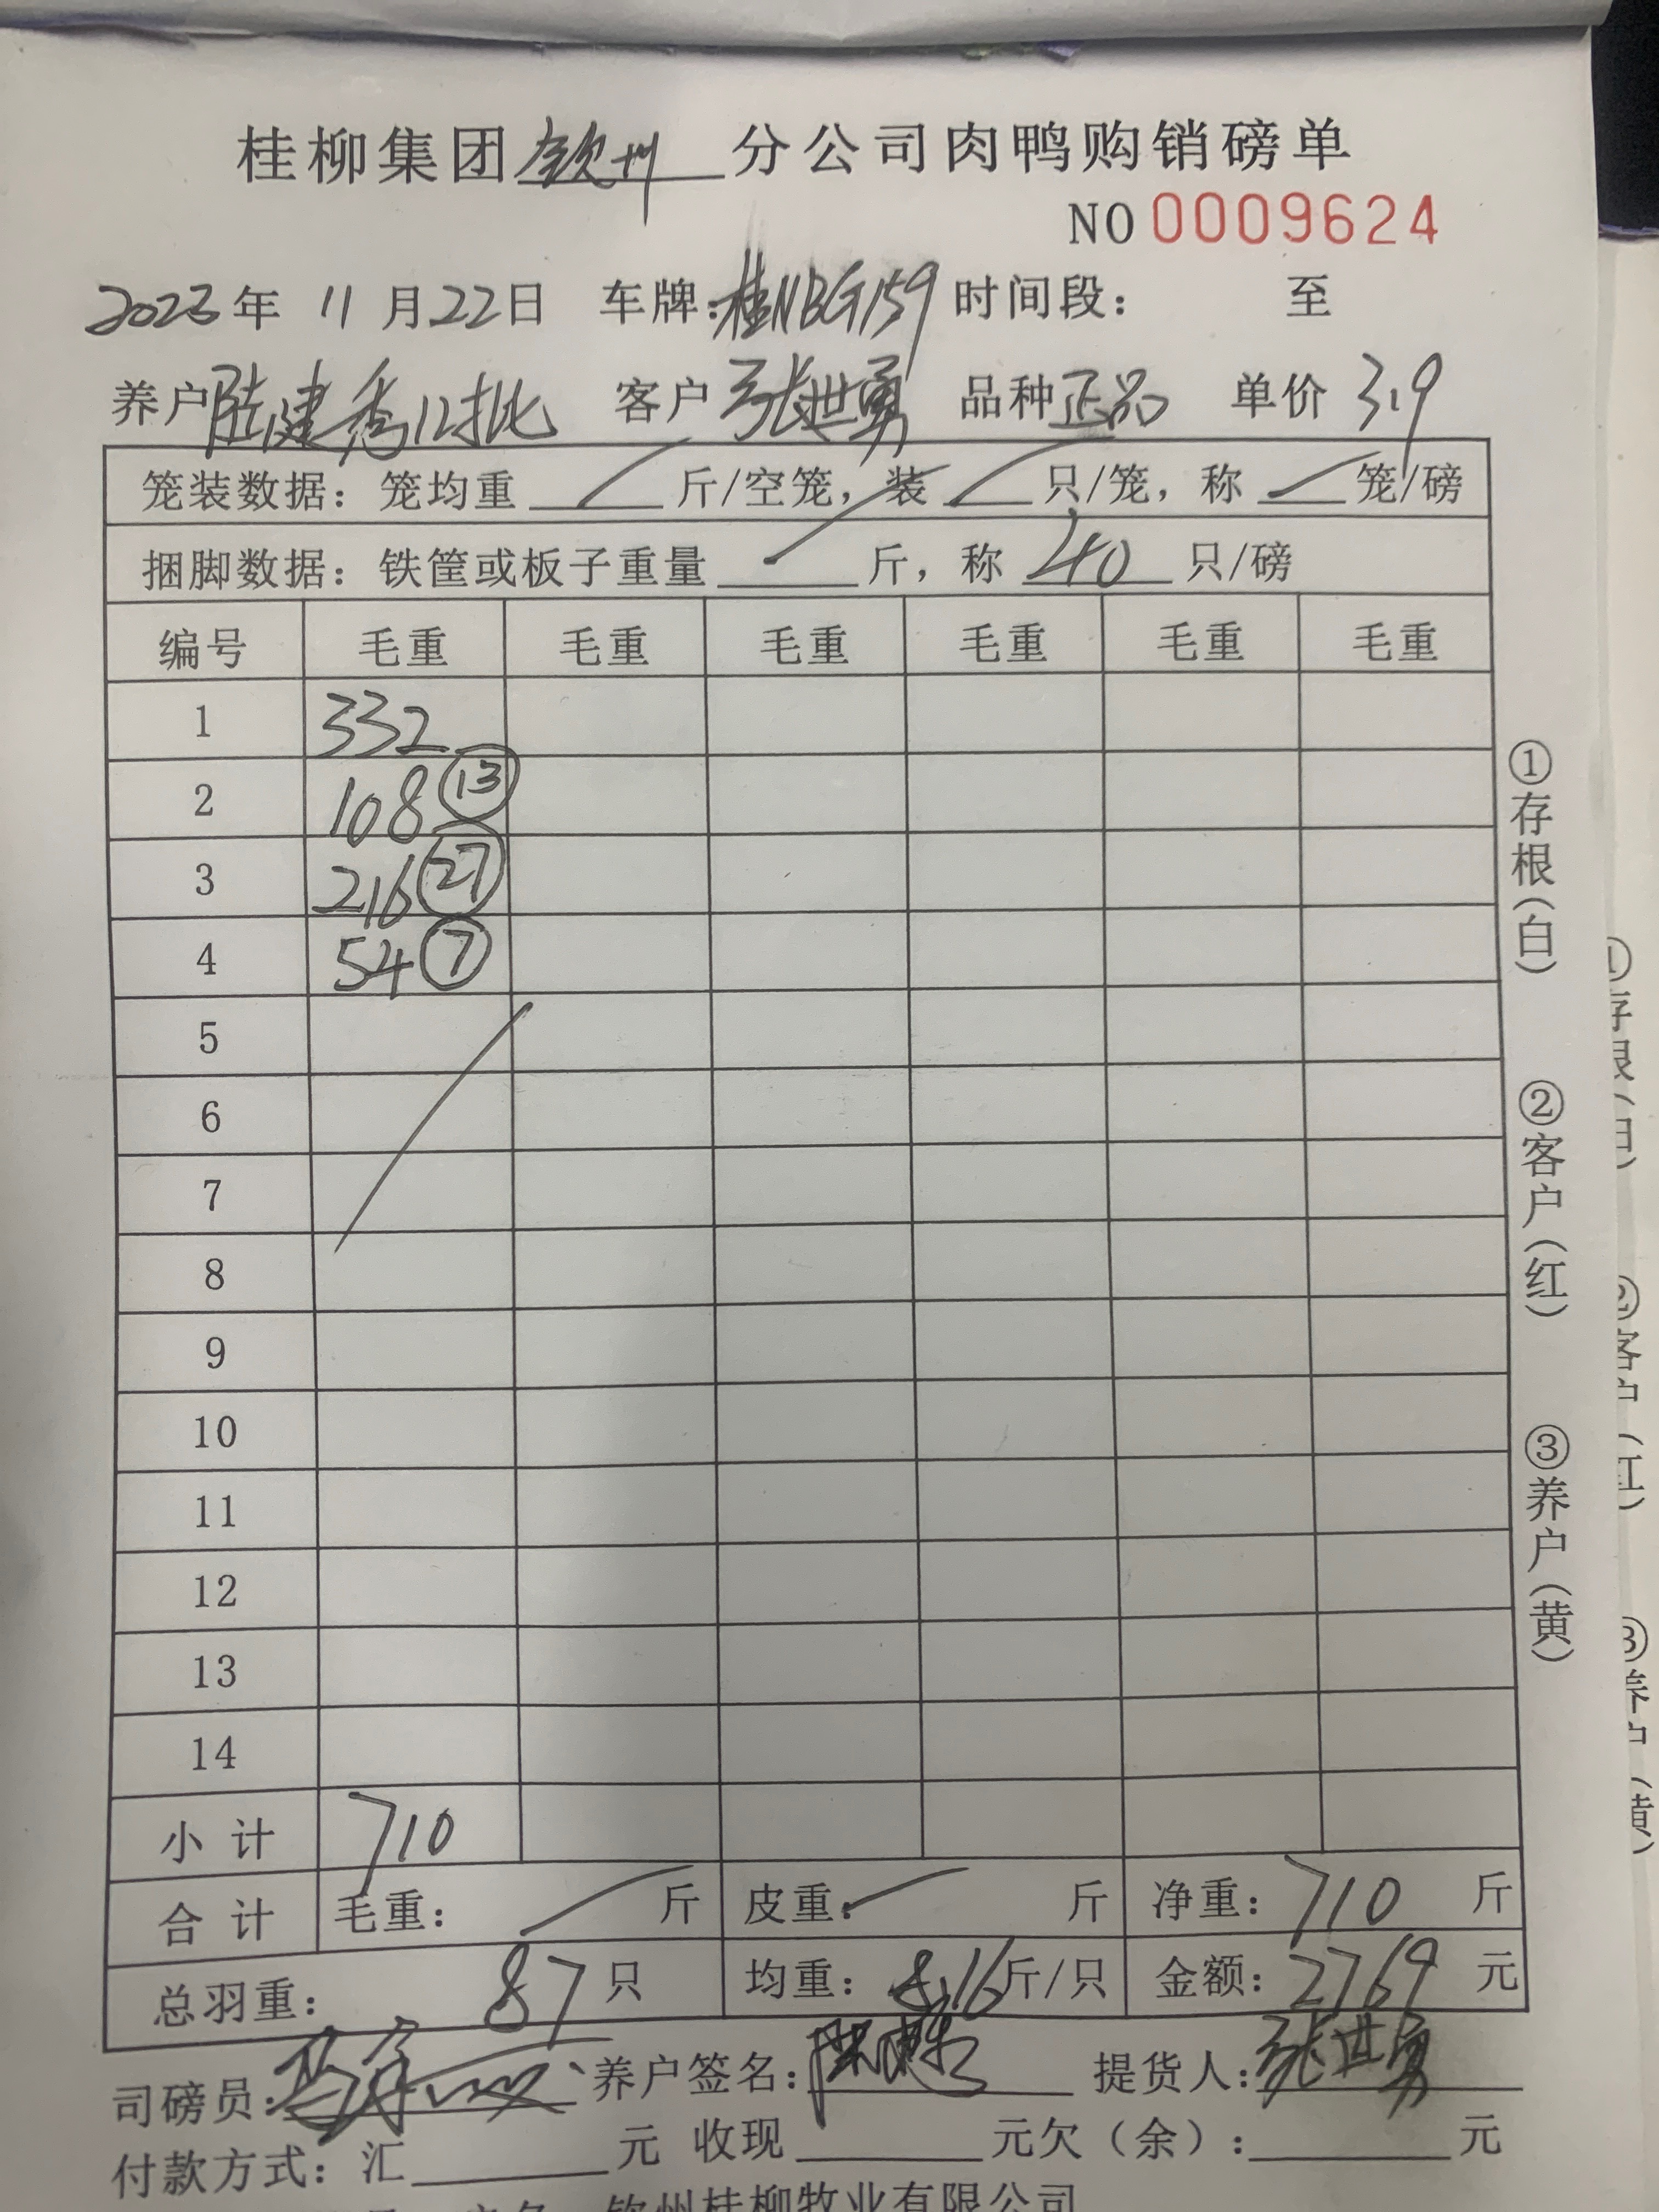 桂柳集团钦州分公司肉鸭购销磅单
NO 0009624
2023年 11月22日 车牌:桂NBG159 时间段: 至
养户陆建秀12批 客户张世勇 品种正品 单价 3.9
笼装数据:笼均重 / 斤/空笼,装 / 只/笼,称 / 笼/磅
捆脚数据:铁筐或板子重量 / 斤,称 40 只/磅
编号 毛重 毛重 毛重 毛重 毛重 毛重
1 332
2 108 ⑬
3 216 ㉗
4 54 ⑦
5
6
7
8
9
10
11
12
13
14
小计 710
合计 毛重: / 斤 皮重: / 斤 净重: 710 斤
总羽重: 87 只 均重: 8.16 斤/只 金额: 2769 元
司磅员: 养户签名: 提货人:张世勇
付款方式:汇 元 收现 元欠(余): 元
钦州桂柳牧业有限公司
①存根(白)
②客户(红)
③养户(黄)